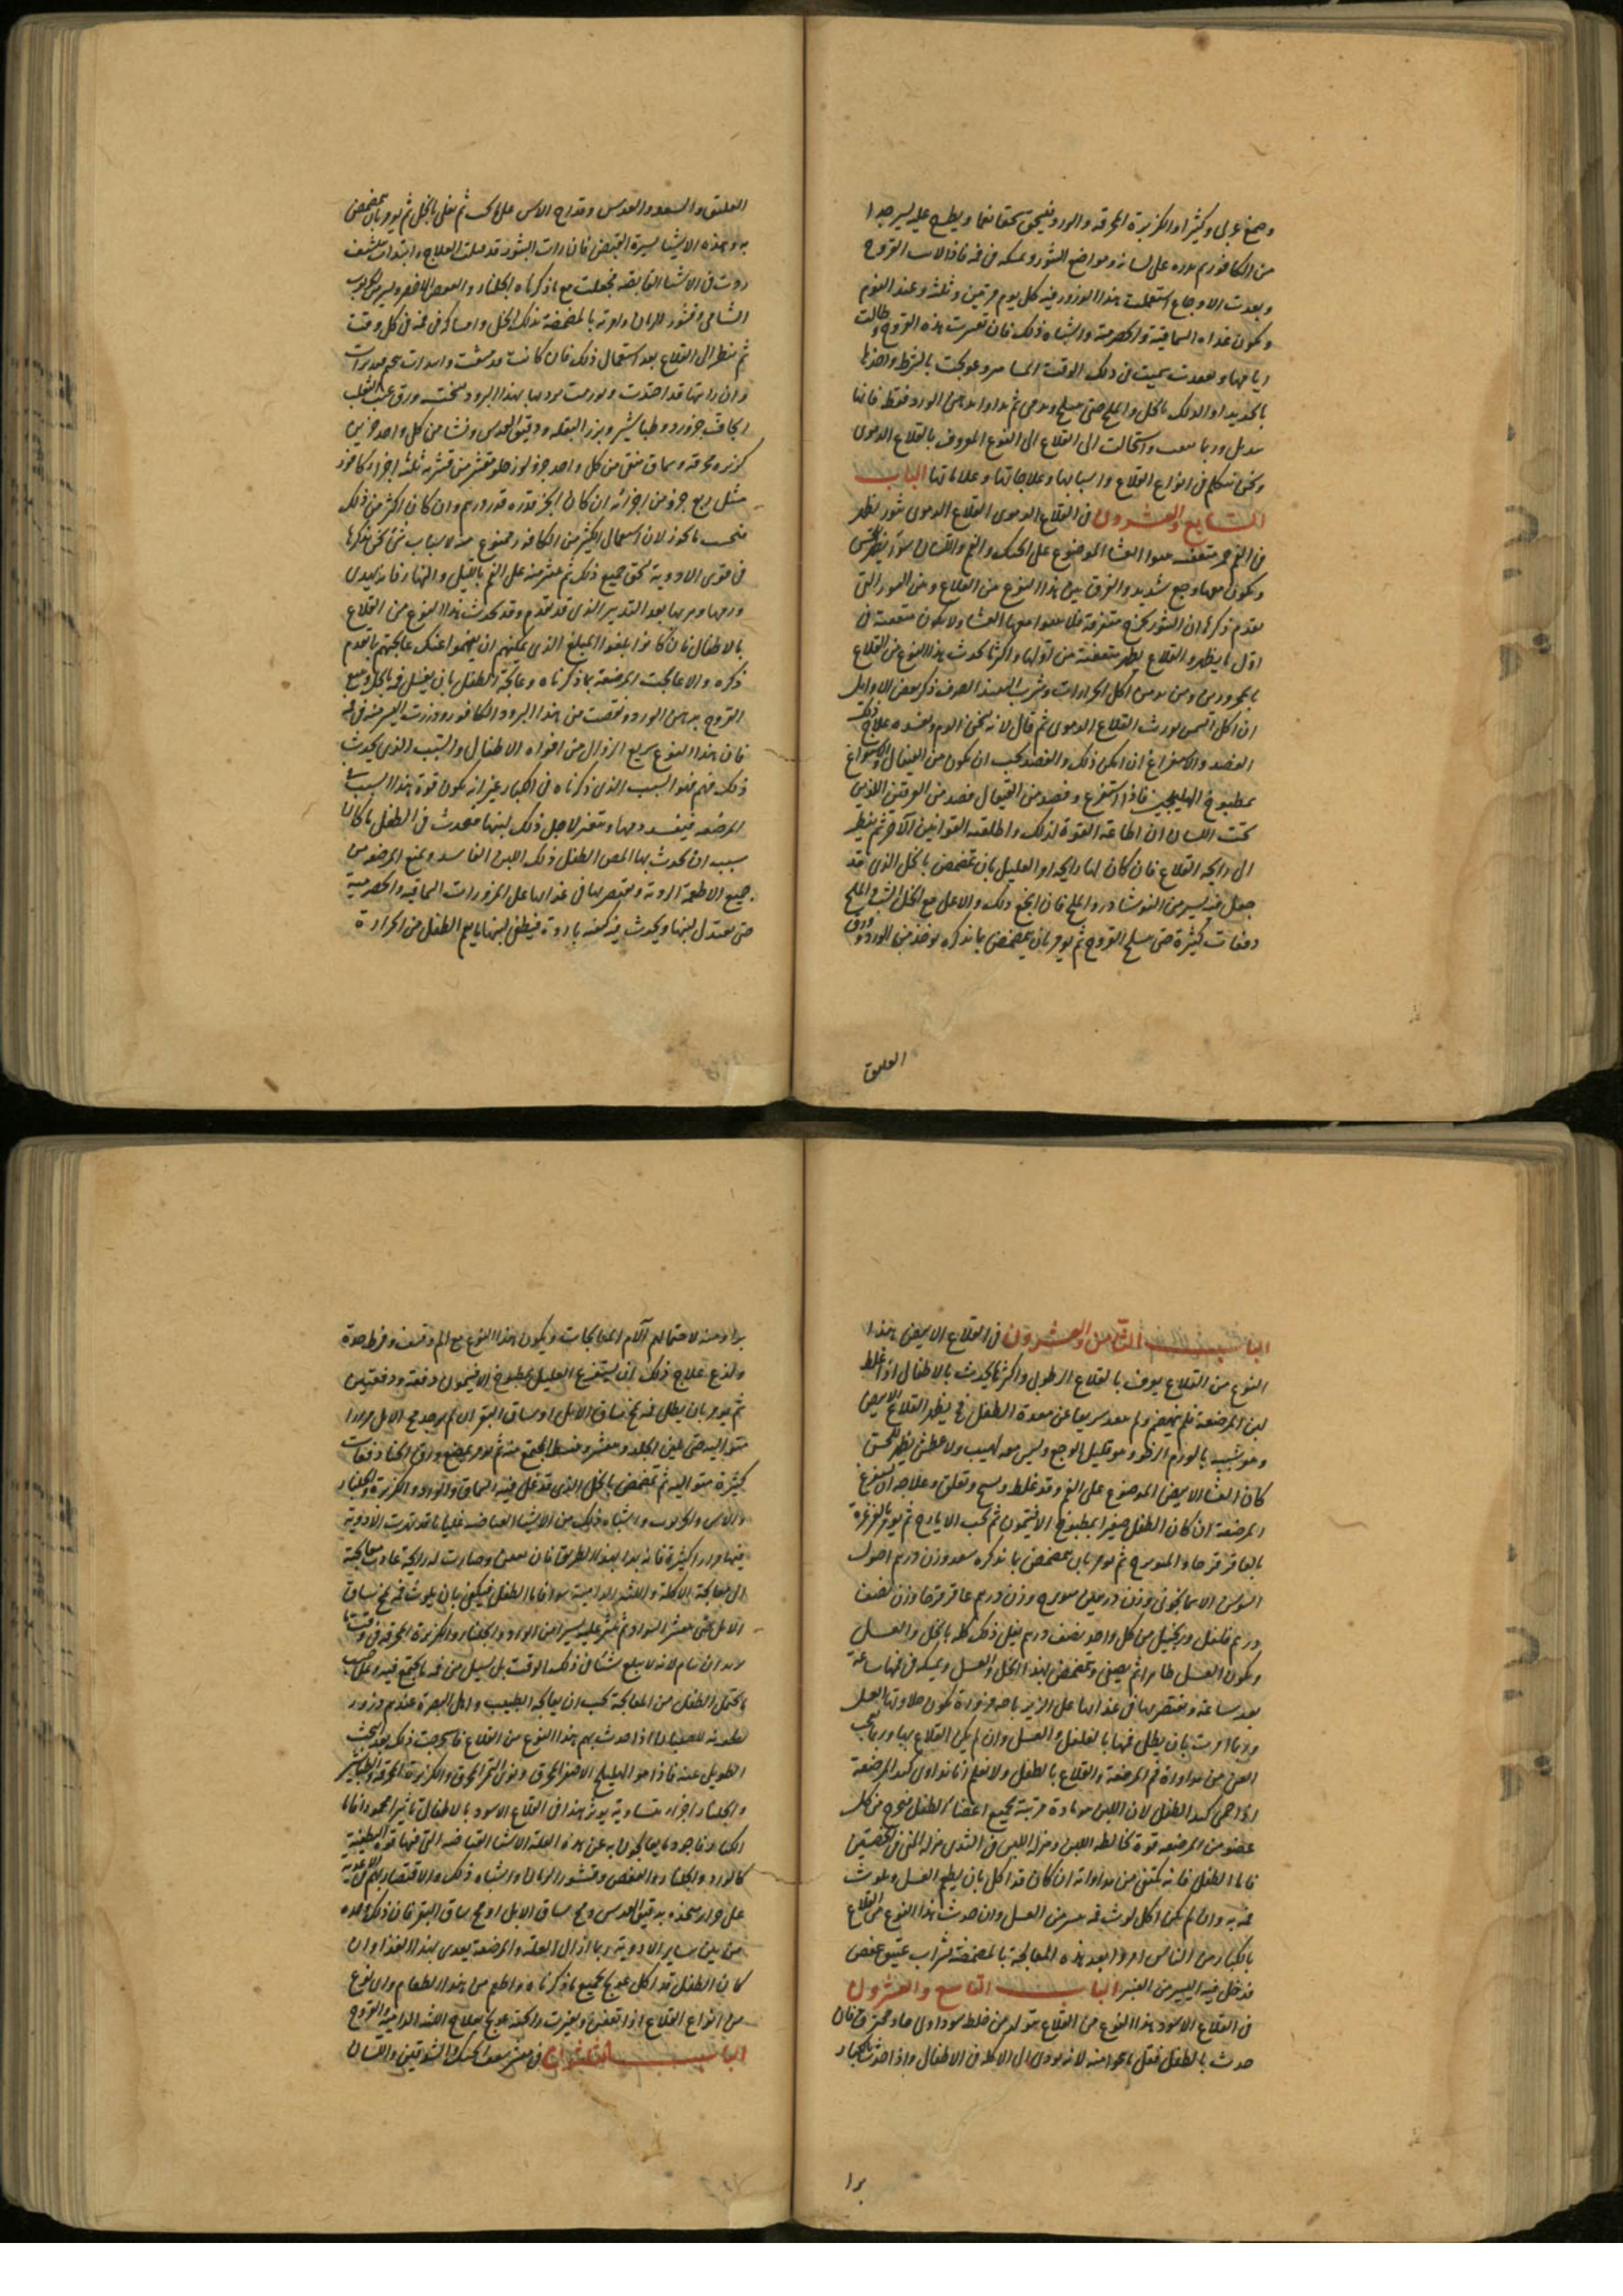 وصمغ عربى وكثيرا والكزبرة المحرقة والورد وتسحق سحقا ناعما ويطرح عليه يسير جدا
من الكافور ثم يذره على لسانه ومواضع البثور ويمسكه فى فمه فاذا لانت القروح
وبعدت الاوجاع استعملت هذا الذرور فيه كل يوم مرتين وثلثه وعند النوم
ويكون غذاه السماقية والحصرمية واشباه ذلك فان تعسرت هذه القروح وطالت
ايامها وتعقدت سميت فى ذلك الوقت وعولجت بالشرط واخذها
بالحديد او الدلك بالخل والملح حتى ينسلخ ويدمى ثم يداوا بدهن الورد فقط فانها
تندمل وربما واستحالت الى القلاع الى النوع المعروف بالقلاع الدموى
ونحن نتكلم فى انواع القلاع واسبابها وعلاجاتها وعلاماتها الباب
السابع والعشرون فى القلاع الدموى القلاع الدموى بثور يظهر
فى الفم متعفنه الغشا الموضوع على الحنك والفم واللسان
ويكون معها وجع شديد والفرق بين هذا النوع من القلاع وبين البثور التى
تقدم ذكرها ان البثور تخرج متفرقة ولا يكون متعفنة فى
اول ما يظهر والقلاع يظهر متعفنة من اولها واكثر ما يحدث هذا النوع من القلاع
بالمحرورين ومن يدمن اكل الحرارات وشرب النبيذ الصرف ذكر بعض الاوايل
ان اكل التمر يورث القلاع الدموى ثم قال لانه يسخن الدم ويفسده علاج ذلك
الفصد والاستفراغ ان امكن ذلك والفصد يجب ان يكون من القيفال والاستفراغ
بمطبوخ الهليلج فاذا استفرغ وفصد من القيفال فصد من العرقين اللذين
تحت اللسان ان اطاعة القوة لذلك واطلقته القوانين الآخر ثم ينظر
الى رايحة القلاع فان كان لها رايحة امر العليل بان يتمضمض بالخل الذى قد
جعل فيه يسير من النوشادر والملح فان انجع ذلك والا على مع الخل الشب والملح
دفعات كثيرة حتى ينسلخ القروح ثم يومر بان يتمضمض بما نذكره يوخذ من الورد وورق
العليق
العليق والسعد والعدس وقداح الاس على ما يجب ثم يغلى بالخل ثم يومر بان يتمضمض
به وبهذه الاشيا يسيرة القبض فان رات البثور قد قبلت العلاج وابتدات تنشف
زدت فى الاشيا القابضه فجعلت مع ما ذكرناه الجلنار والعفص الاخضر والخرنوب
الشامى وقشور الرمان وامرته بالمضمضة بذلك الخل وامساكه فى فمه فى كل وقت
ثم ينظر الى القلاع بعد استعمال ذلك فان كانت قد نشفت
وان رايتها قد احتدت وتورمت بردتها بهذا البرود صفته ورق عنب الثعلب
الجاف جزو ورد وطباشير وبزر البقله ودقيق العدس ونشا من كل واحد جزين
كزبره محرقه وسماق منقى من كل واحد جزو لوز حلو مقشر من قشريه ثلثه اجزا كافور
مثل ربع جزو من اجزائه ان كان الجزو قدره قدر درهم وان كان اكثر من ذلك
فيحسب ما يجوز لان استعمال الكثير من الكافور ممنوع منه لاسباب شتى نحن نذكرها
فى قوى الادوية يسحق جميع ذلك ثم ينثر منه على الفم بالليل والنهار فانه يهدى
ورمها ويبرها بعد التدبير الذى قد تقدم وقد يحدث هذا النوع من القلاع
بالاطفال فان كانوا بلغوا المبلغ الذى يمكنهم ان يفهموا عنك عالجتهم بما تقدم
ذكره والا عالجت المرضعة بما ذكرناه وعالجة الطفل بان يغسل فمه بالخل ويمسح
القروح بدهن الورد ونقصت من هذا البرود الكافور وذررت اليسير منه فى فمه
فان هذا النوع سريع الزوال من افواه الاطفال والسبب الذى يحدث
ذلك منهم هو السبب الذى ذكرناه فى الكبار غير انه يكون قوة هذا السبب فى
المرضعه فيفسد دمها ويتغير لاجل ذلك لبنها فيحدث فى الطفل ما كان
سبب ان يحدث بها المص الطفل ذلك اللبن الفاسد ويمنع المرضعه من
جميع الاطعمة الردية ويقتصر بها فى غذايها على المزورات السماقيه والحصرمية
حتى يعتدل لبنها ويحدث فيه كيفيه باردة فيطفى لبنها ما بفم الطفل من الحرارة
الباب الثامن والعشرون فى القلاع الابيض هذا
النوع من القلاع يعرف بالقلاع الرطوبى واكثر ما يحدث بالاطفال اذا غلظ
لبن المرضعة فلم ينهضم ولم ينفذ سريعا عن معدة الطفل فح يظهر القلاع الابيض
وهو شبيه بالورم الرخو وهو قليل الوجع وليس معه لهيب ولا عطش يظهر للحس
كان الغشا الابيض الموضوع على الفم وقد غلظ وعلاجه ان تستفرغ
المرضعة ان كان الطفل صغيرا بمطبوخ الافتيمون ثم بحب الايارج ثم يومر بالغرغرة
بالعاقرقرحا والميويزج ثم يومر بان يتمضمض بما نذكره سعد وزن درهم اصول
السوسن الاسمانجونى وزن درهمين ميويزج وزن درهم عاقرقرحا وزن نصف
درهم فلفل وزنجبيل من كل واحد نصف درهم يغلى ذلك كله بالخل والعسل
ويكون العسل ظاهرا ثم يصفى ويتمضمض بهذا الخل والعسل ويمسكه فى فمها ساعة
بعد ساعة ويقتصر بها فى غذايها على الزيرباجه مزورة يكون حلاوتها العسل
وربما امرت بان يطلى فمها بالفلفل والعسل وان لم يكن القلاع بها وربما تعجب
العوام من مداواة فم المرضعة والقلاع بالطفل ولا نعلم اننا نداوى كبد المرضعة
اذا حمى كبد الطفل لان اللبن هو مادة مربية لجميع اعضا الطفل فيخرج من كل
عضو من المرضعه قوة تخالطه اللبن ومنزلة اللبن فى الثدى منزله المنى فى الخصيتين
فاما الطفل فانه يكتفى من مداواته ان كان قد اكل بان يطعم العسل ويلوث
فمه به وان لم يكن اكل لوث فمه بيسير من العسل وان حدث هذا النوع من القلاع
بالكبار من الناس امروا بعد هذه المعالجة بالمضمضة بشراب عتيق عفص
قد خل فيه اليسير من العنبر الباب التاسع والعشرون
فى القلاع الاسود هذا النوع من القلاع يتولد من خلط سوداوى حاد محترق فان
حدث بالطفل فقل ما ينجوا منه لانه يودى الى الاكله فى الاطفال واذا حدث بالكبار
برا
برا ومنه لاحتمالهم آلام المعالجات ويكون هذا النوع مع الم وقشف وفرط حدة
ولذع علاج ذلك ان يستفرغ العليل بمطبوخ الافتيمون دفعة ودفعتين
ثم يومر بان يطلى فمه بمخ ساق الابل او مساق البقر ان لم يوجد مخ الابل مرارا
متواليه حتى يلين الجلد ثم يومر بمضغ ورق الحنا دفعات
كثيرة متواليه ثم يتمضمض بالخل الذى قد غلى فيه السماق والورد والكزبرة والجلنار
والاس والخرنوب واشباه ذلك من الاشيا القابضه غليانا قد تهرت الادوية
فيها مرارا كثيرة فانه يبرا بهذا الطريق فان تعفن وصارت له رايحة عادت معالجته
الى معالجة الاكلة واللثه الدامية سوا فاما الطفل فيكفى بان يلوث فمه بمخ ساق
الابل حتى ينتشر السواد ثم ينثر عليه يسيرا من الورد والجلنار والكزبرة المحرقه فى وقت ما
يريد ان ينام لانه لا يبلع شيا فى ذلك الوقت بل يسيل من فمه ما يجتمع فيه وعلى حسب
ما يحتمل الطفل من المعالجة يجب ان يعالجه الطبيب واهل البصرة عندهم ذرور
للصبيان اذا حدث بهم هذا النوع من القلاع فاستخرجت ذلك بعد البحث
الطويل عنه فاذا هو الهليلج الاصفر المحرق ونوى التمر المحرق والكزبرة المحرقة والطباشير
والجلنار اجزا متساوية يوثر هذا فى القلاع الاسود بالاطفال تاثيرا محمودا فاما
الكبار فاجود ما يعالجون به عن هذه العلة الاشيا القابضه التى فيها قوة لطيفية
كالورد والجلنار والعفص وقشور الرمان واشباه ذلك والاقتصار بهم من الاغذية
على حرارة متخذه بدقيق العدس ومخ ساق الابل او مخ ساق البقر فان ذلك وحده
من بين ساير الادوية ربما ازال العله والمرضعة بغذى بهذا الغذا وان
كان الطفل قد اكل عولج بجميع ما ذكرناه واطعم من هذا الطعام واى نوع
من انواع القلاع اذا تعفن وتغيرت رايحته عولج بعلاج اللثه الدامية والقروح
الباب الثلثون فى تقشر سقف الحنك والشدقين واللسان